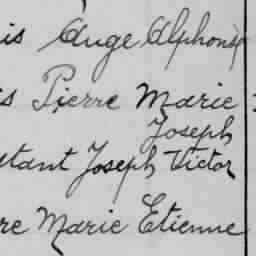 is Ange Alphonse
is Pierre Marie
Joseph
tant Joseph Victor
re Marie Etienne